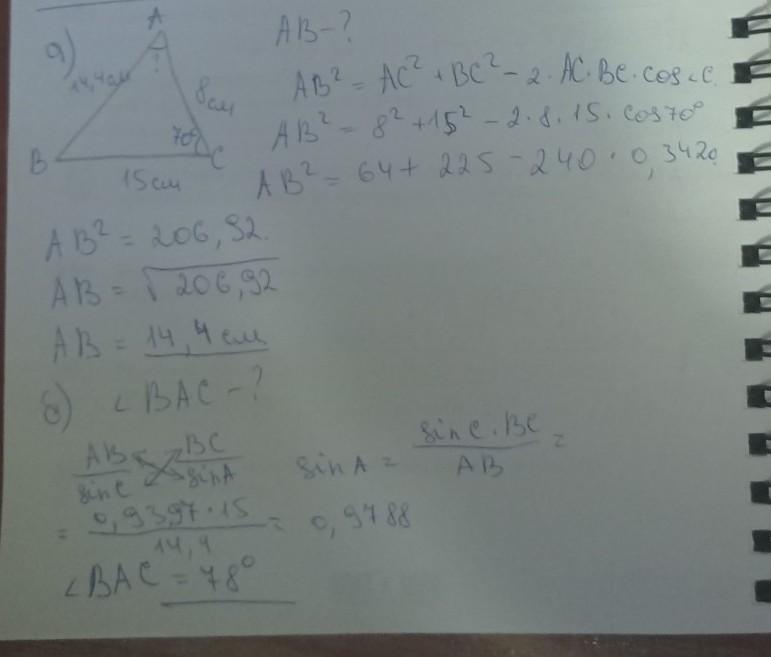 а)
A
14,4см
?
8см
70°
B
C
15см
AB-?
AB² = AC² + BC² - 2·AC·BC·cos∠C.
AB² = 8² + 15² - 2·8·15·cos70°
AB² = 64 + 225 - 240·0,3420
AB² = 206,92.
AB = √206,92
AB = 14,4см
б) ∠BAC-?
AB/sinC BC/sinA sinA = sinC·BC/AB =
= 0,9397·15/14,4 = 0,9788
∠BAC = 78°